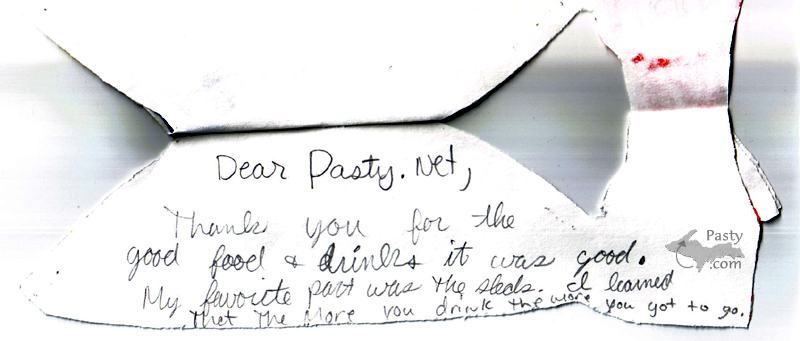 Dear Pasty.Net,
Thank you for the
good food & drinks it was good.
My favorite part was the sleds. I learned
thet the more you drink the more you got to go.
Pasty
.com